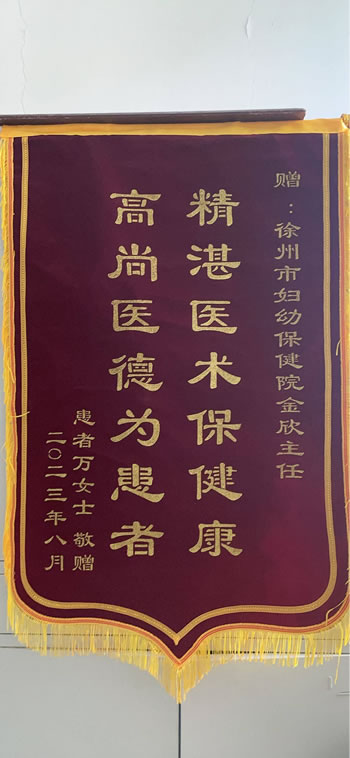 赠：徐州市妇幼保健院金欣主任
精湛医术保健康
高尚医德为患者
患者万女士 敬赠
二〇二三年八月